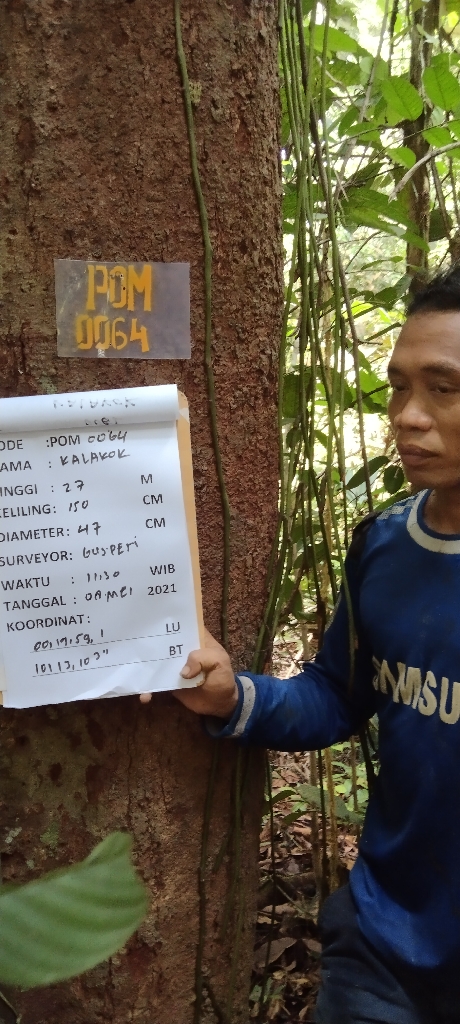 POM
0064
ODE :POM 0064
AMA : KALAKOK
INGGI : 27 M
KELILING: 150 CM
DIAMETER: 47 CM
SURVEYOR: GUSPERI
WAKTU : 11:30 WIB
TANGGAL : 08 MEI 2021
KOORDINAT:
00,19,53,1 LU
101,13,103" BT